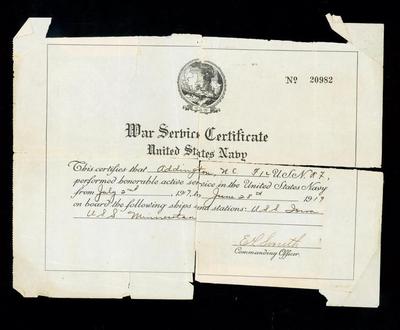 No 20982
War Service Certificate
United States Navy
This certifies that Addington, N C F1c U.S.N.R.F.
performed honorable active service in the United States Navy
from July 2nd, 1917, to June 28 1919
on board the following ships and stations: U.S.S. Iowa
U.S.S. Minnesotan
Commanding Officer.